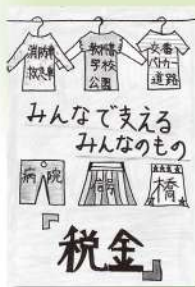 消防車
救急車
教科書
学校
公園
交番
パトカー
道路
みんなで支える
みんなのもの
病院
橋
「税金」